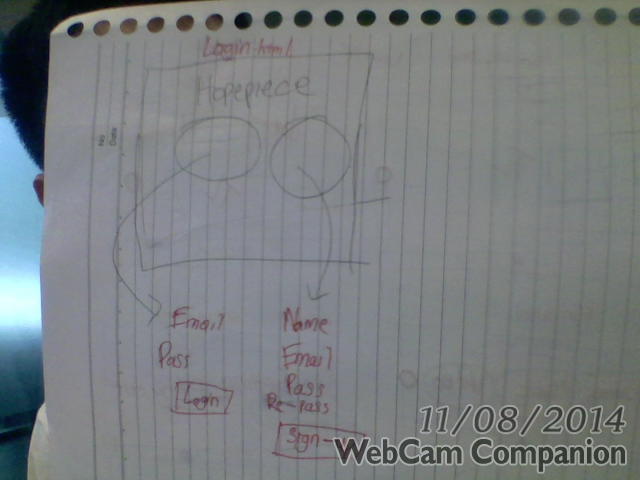 Login.html
Hopepiece
No
Date
Email
Pass
Login
Name
Email
Pass
Re-pass
Sign-
11/08/2014
WebCam Companion